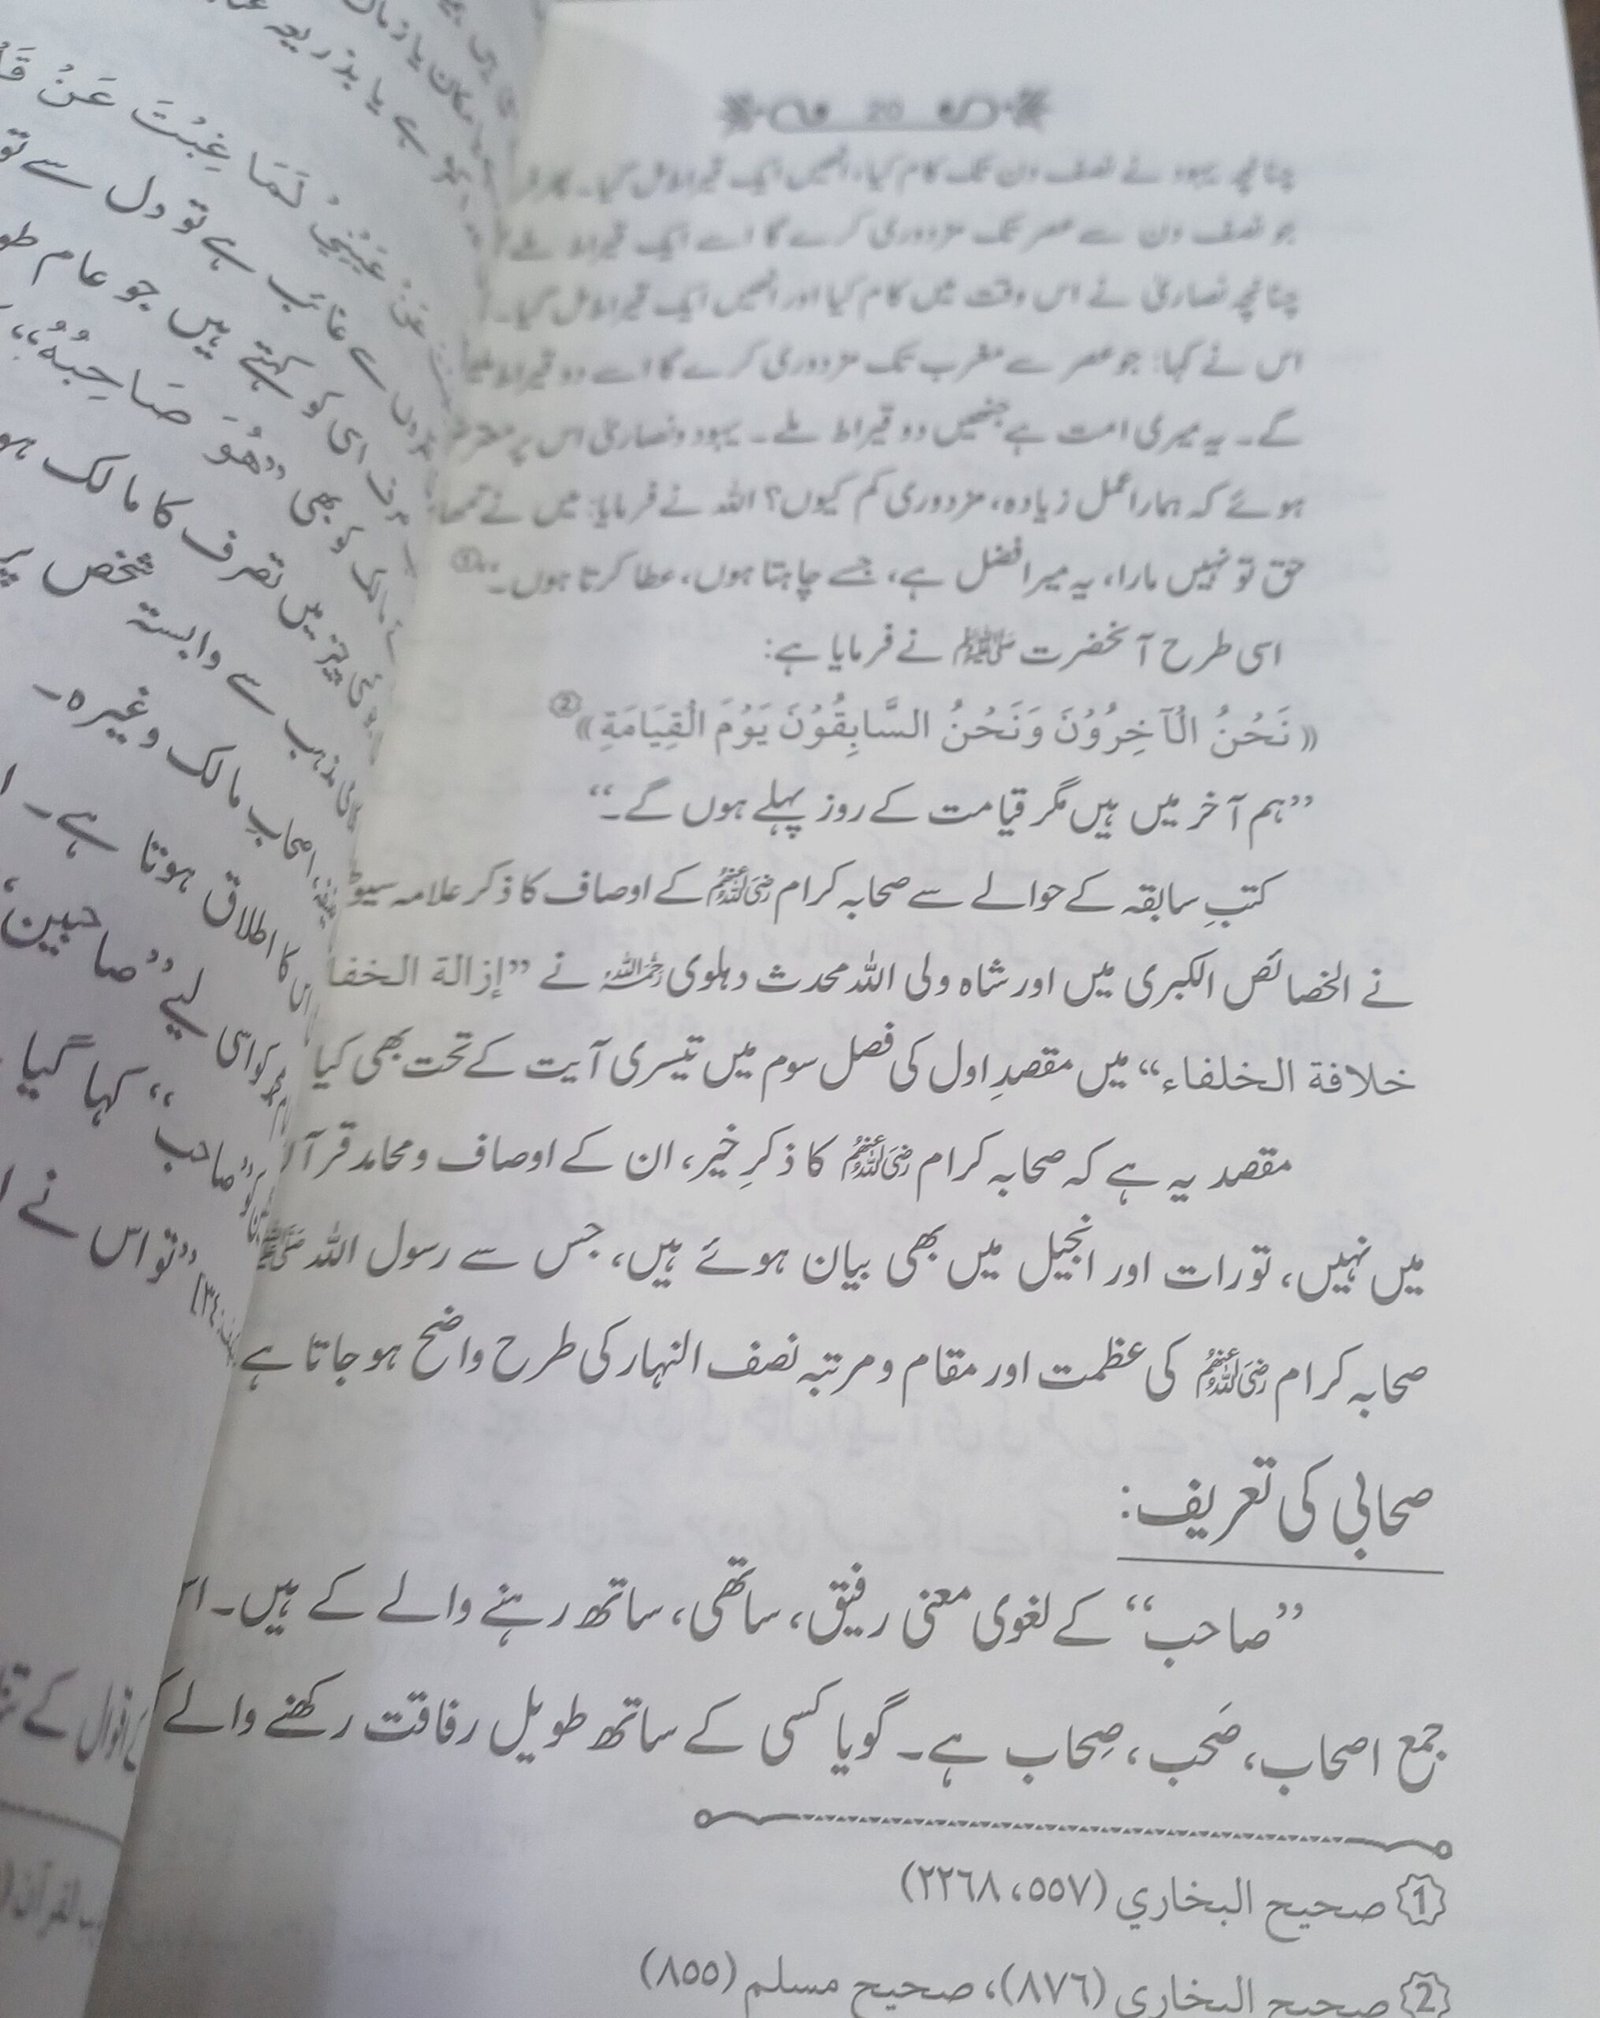 20
چنانچہ یہود نے نصف دن تک کام کیا، انھیں ایک قیراط مل گیا۔ پھر
جو نصف دن سے عصر تک مزدوری کرے گا اسے ایک قیراط ملے
چنانچہ نصاریٰ نے اس وقت میں کام کیا اور انھیں ایک قیراط مل گیا۔
اس نے کہا: جو عصر سے مغرب تک مزدوری کرے گا اسے دو قیراط
گے۔ یہ میری امت ہے جنھیں دو قیراط ملے۔ یہود ونصاریٰ اس پر
ہوئے کہ ہمارا عمل زیادہ، مزدوری کم کیوں؟ اللہ نے فرمایا: میں نے
حق تو نہیں مارا، یہ میرا فضل ہے، جسے چاہتا ہوں، عطا کرتا ہوں۔“①
اسی طرح آنحضرت ﷺ نے فرمایا ہے:
«نَحْنُ الْآخِرُوْنَ وَنَحْنُ السَّابِقُوْنَ يَوْمَ الْقِيَامَةِ»②
”ہم آخر میں ہیں مگر قیامت کے روز پہلے ہوں گے۔“
کتبِ سابقہ کے حوالے سے صحابہ کرام رضی اللہ عنہم کے اوصاف کا ذکر علامہ
نے الخصائص الکبری میں اور شاہ ولی اللہ محدث دہلوی رحمہ اللہ نے ”إزالة الخفا
خلافة الخلفاء“ میں مقصدِ اول کی فصل سوم میں تیسری آیت کے تحت بھی کیا
مقصد یہ ہے کہ صحابہ کرام رضی اللہ عنہم کا ذکرِ خیر، ان کے اوصاف ومحامد
میں نہیں، تورات اور انجیل میں بھی بیان ہوئے ہیں، جس سے رسول اللہ ﷺ
صحابہ کرام رضی اللہ عنہم کی عظمت اور مقام ومرتبہ نصف النہار کی طرح واضح ہو جاتا ہے
صحابی کی تعریف:
”صاحب“ کے لغوی معنی رفیق، ساتھی، ساتھ رہنے والے کے ہیں۔
جمع اصحاب، صَحب، صِحاب ہے۔ گویا کسی کے ساتھ طویل رفاقت رکھنے والے
① صحيح البخاري (٥٥٧، ٢٢٦٨)
② صحيح البخاري (٨٧٦)، صحيح مسلم (٨٥٥)
لَمَا غِبْتَ عَنْ
غائب ہے تو دل سے
اسی کو کہتے ہیں جو عام
کو بھی ”هُوَ صَاحِبُهُ“
میں تصرف کا مالک
مذہب سے وابستہ شخص
اصحابِ مالک وغیرہ۔
کا اطلاق ہوتا ہے۔
کو اسی لیے ”صاحبین“
”صاحب“ کہا گیا
”تو اس نے